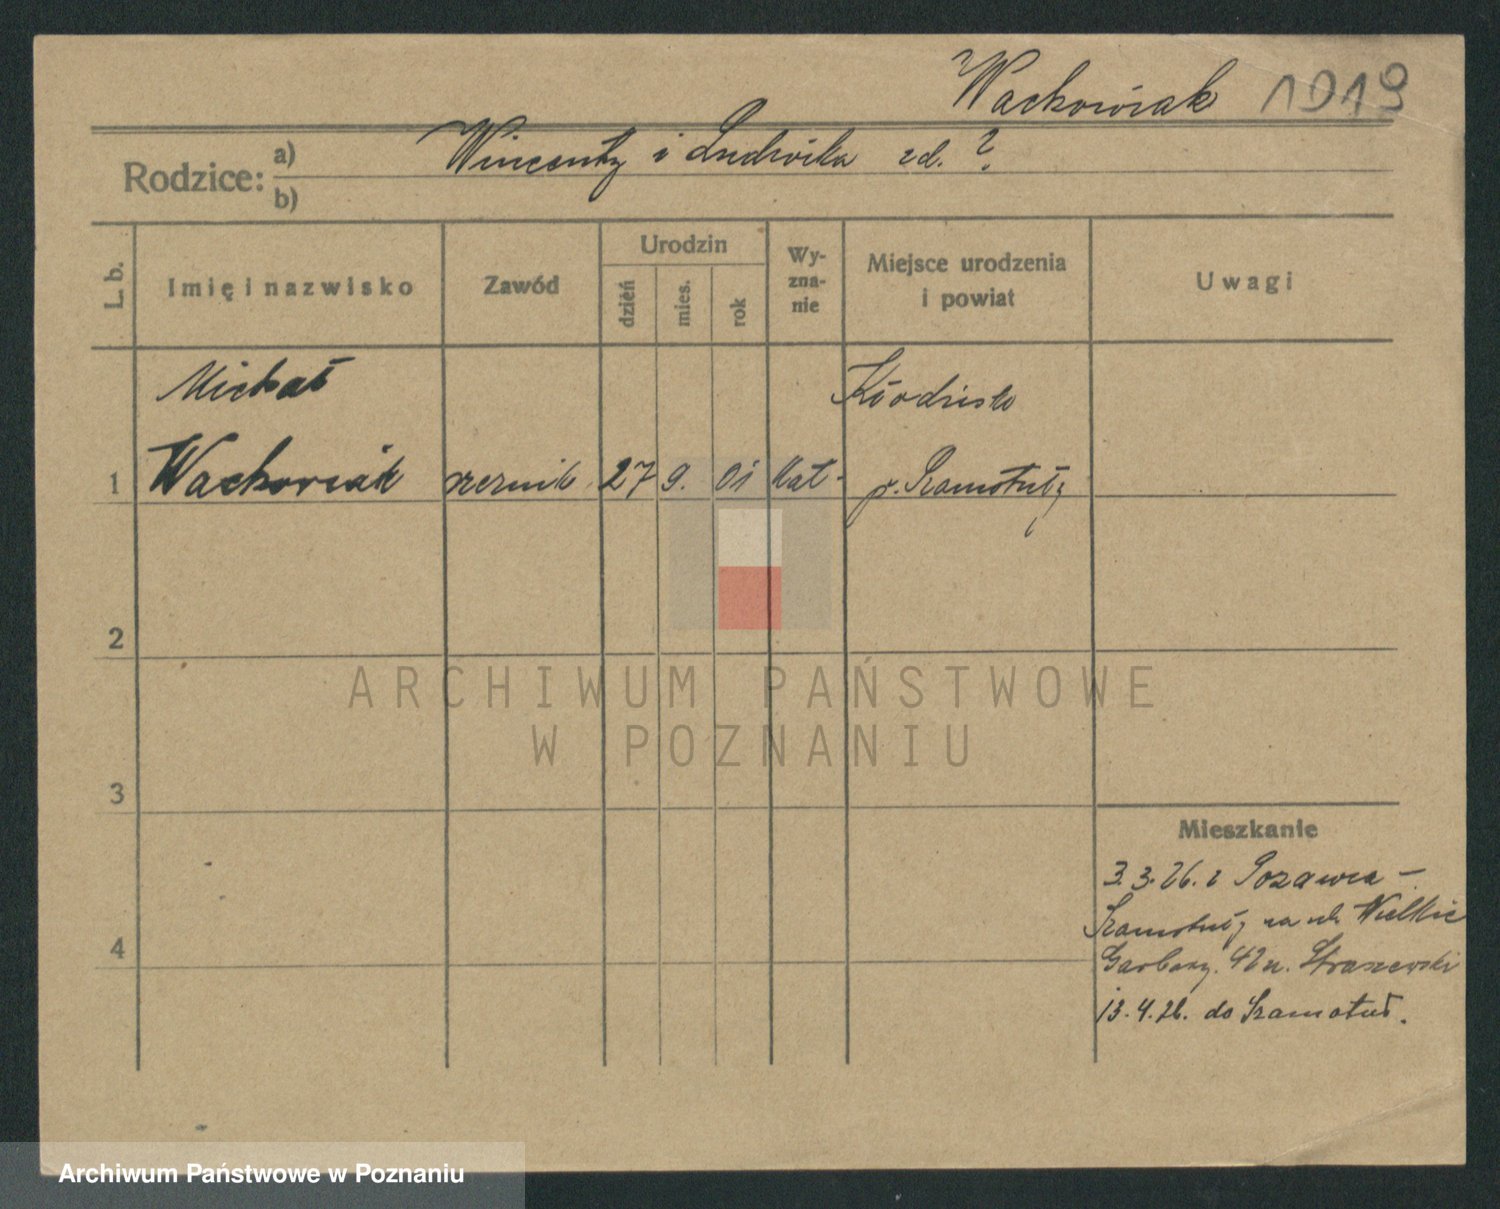 Wachowiak 1019
Rodzice: a) Wincenty i Ludwika zd. ?
b)
L. b. Imię i nazwisko Zawód Urodzin dzień mies. rok Wy-zna-nie Miejsce urodzenia i powiat Uwagi
Michał Kłodzisko
1 Wachowiak rzeznik 27 9. 01 kat. p. Szamotuły
2
ARCHIWUM PAŃSTWOWE
W POZNANIU
3
Mieszkanie
3.3.26. z
Szamotuły na ul. Wielkie
4
Garbary. 42 u. Straszewski
13.4.26. do Szamotuł.
Archiwum Państwowe w Poznaniu